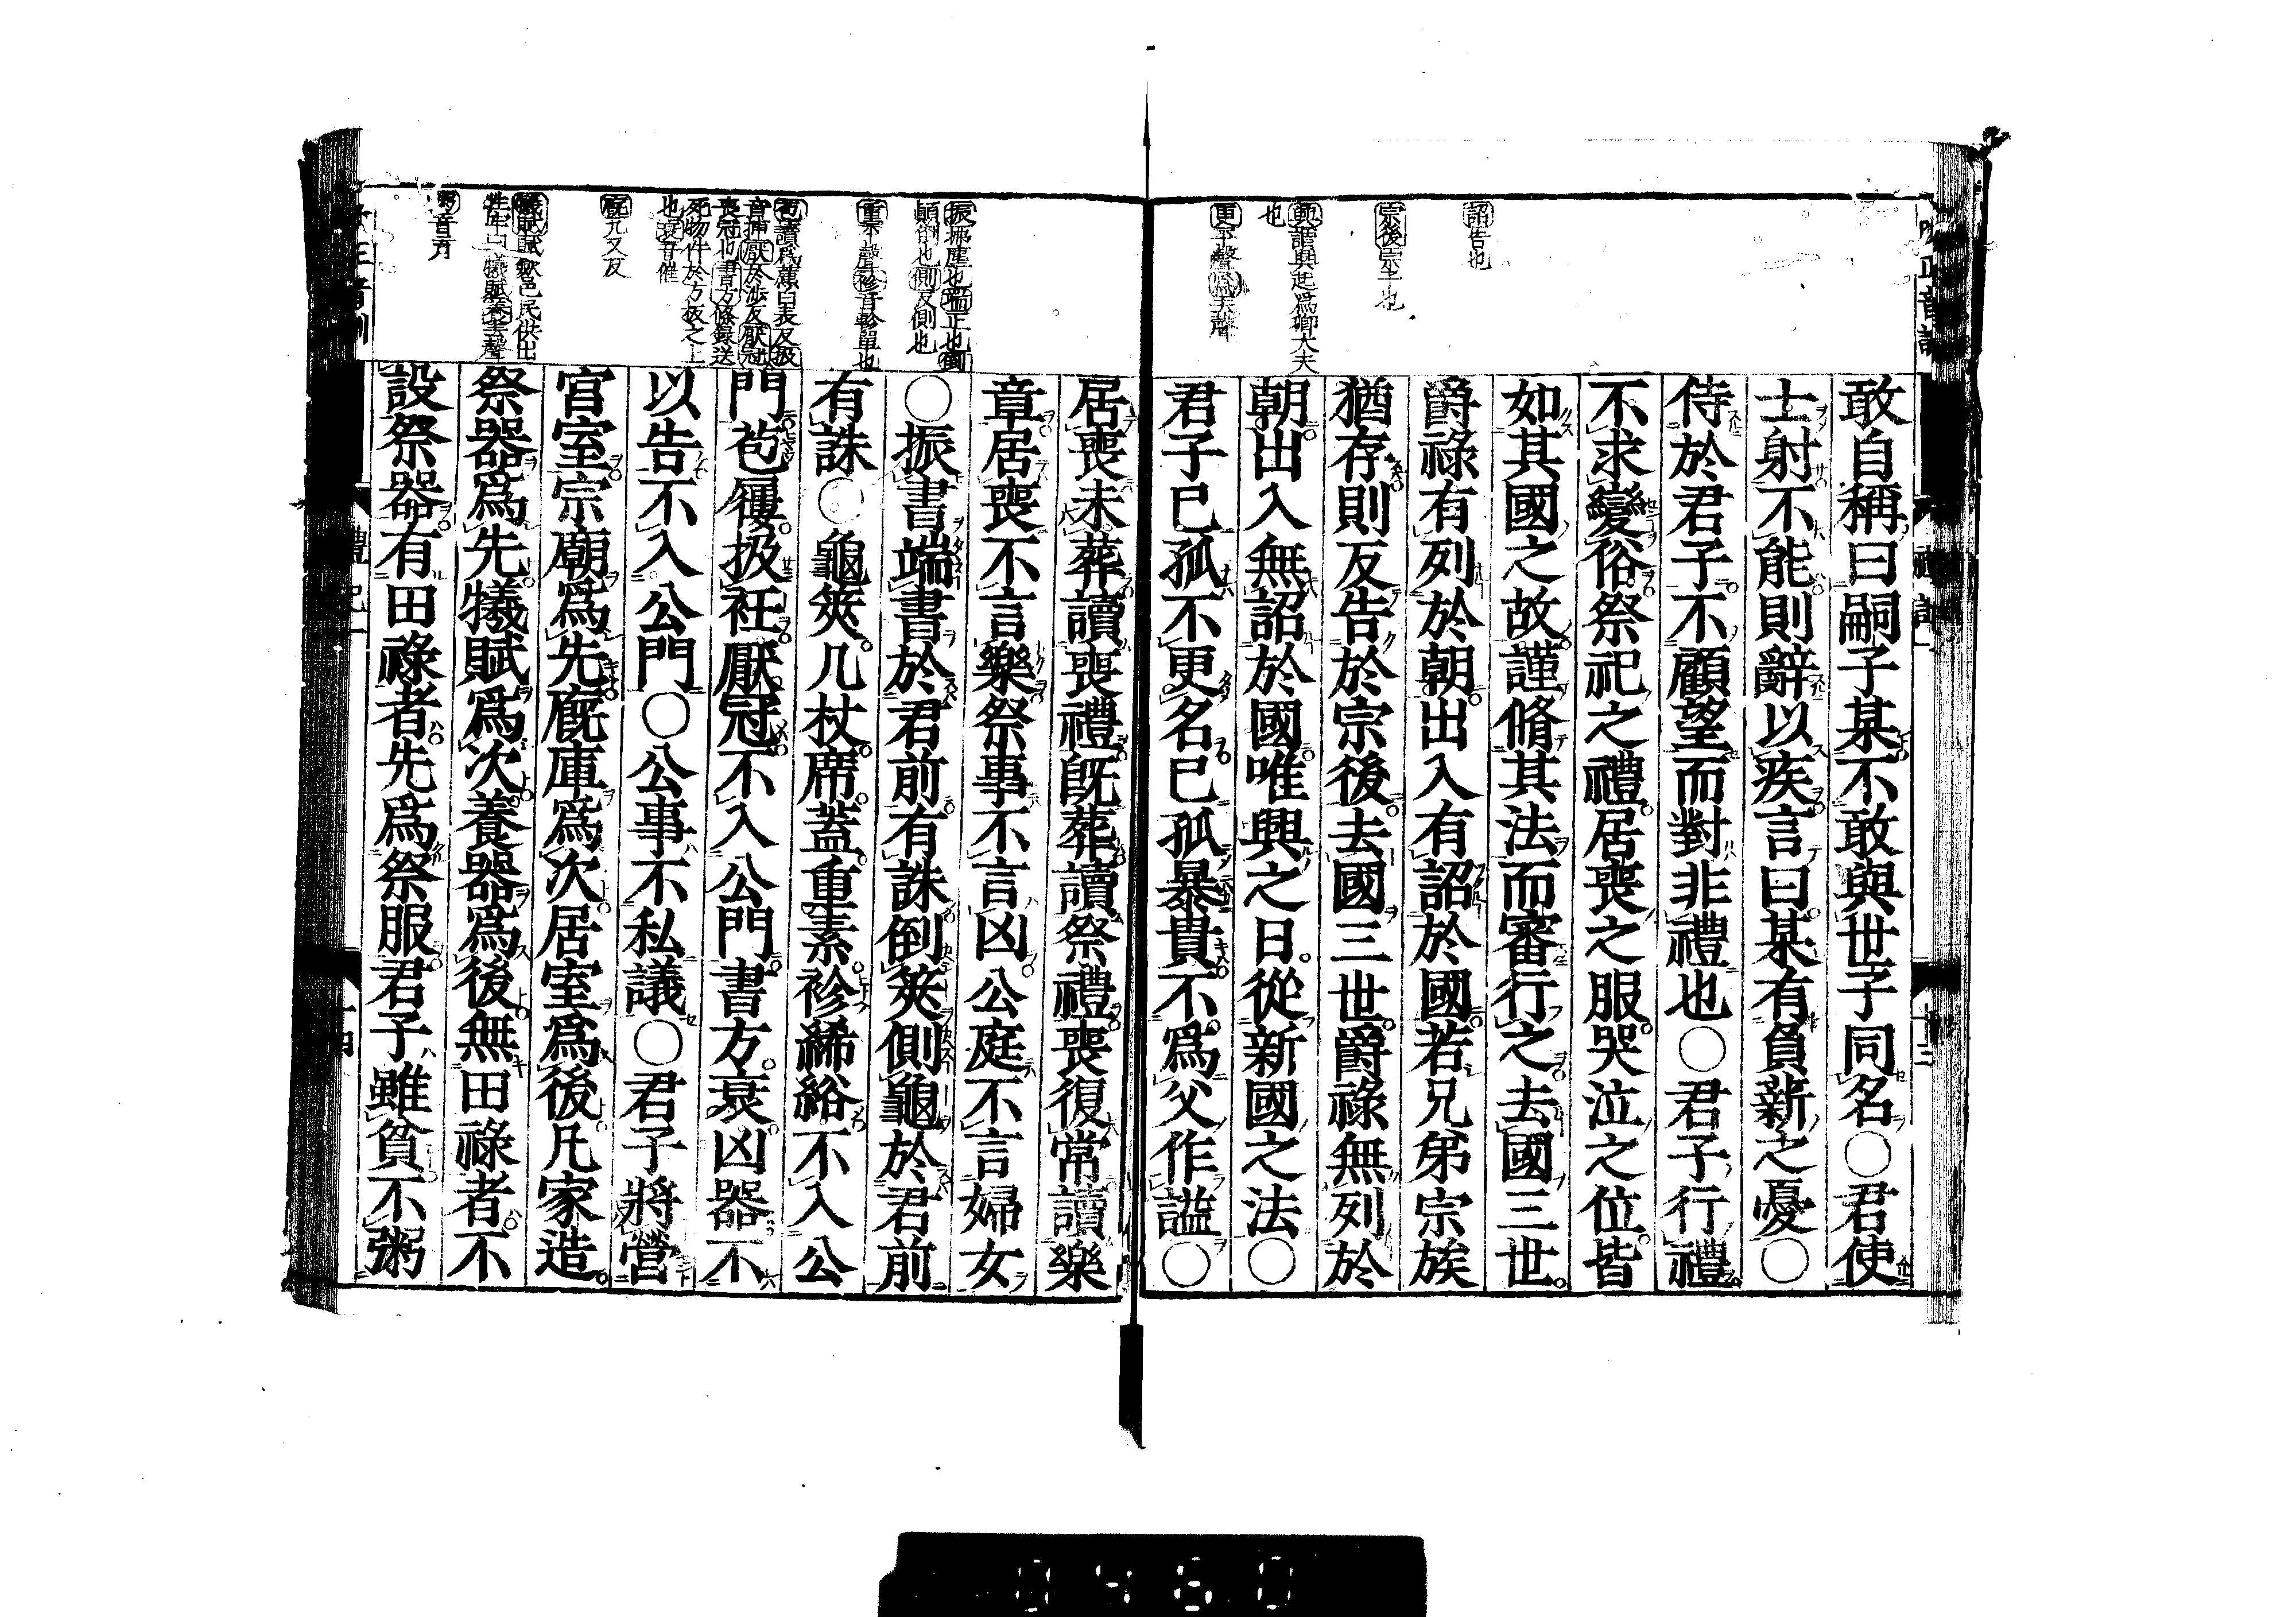 詔告也
宗後宗子也
興謂興起爲卿大夫
也
更平聲爲去聲
敢自稱曰嗣子某不敢與世子同名○君使
士射不能則辭以疾言曰某有負薪之憂○
侍於君子不顧望而對非禮也○君子行禮
不求變俗祭祀之禮居喪之服哭泣之位皆
如其國之故謹脩其法而審行之去國三世
爵祿有列於朝出入有詔於國若兄弟宗族
猶存則反告於宗後去國三世爵祿無列於
朝出入無詔於國唯興之日從新國之法○
君子已孤不更名已孤暴貴不爲父作謚○
振拂塵也端正也倒
顛倒也側反側也
重平聲袗音軫單也
苞讀爲藨白表反扱
音插厭於涉反厭冠
喪冠也書方條錄送
死物件於方板之上
也衰音催
廐九又反
牲牢曰犧賦養去聲
粥音育
居喪未葬讀喪禮旣葬讀祭禮喪復常讀樂
章居喪不言樂祭事不言凶公庭不言婦女
○振書端書於君前有誅倒筴側龜於君前
有誅○龜筴几杖席蓋重素袗絺綌不入公
門苞屨扱衽厭冠不入公門書方衰凶器不
以告不入公門○公事不私議○君子將營
宮室宗廟爲先廐庫爲次居室爲後凡家造
祭器爲先犧賦爲次養器爲後無田祿者不
設祭器有田祿者先爲祭服君子雖貧不粥
禮記一
十四